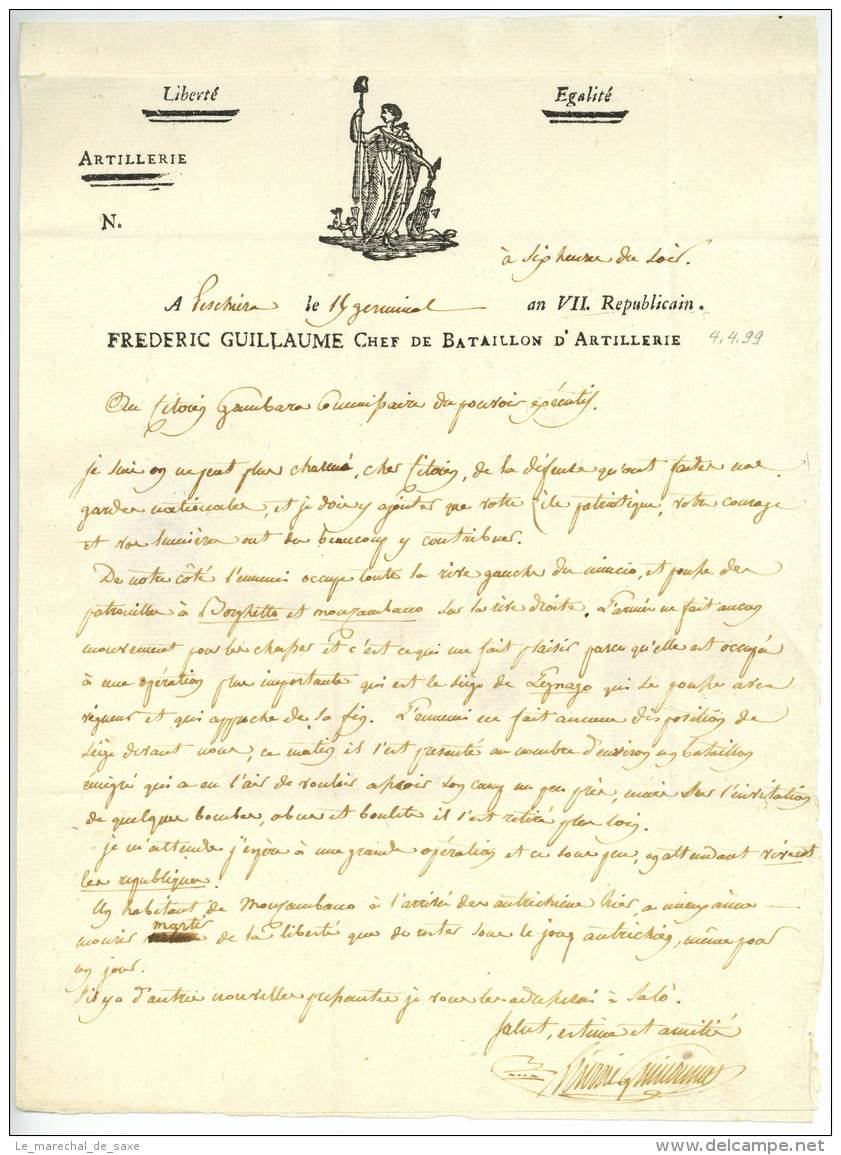 Liberté
Egalité
ARTILLERIE
N.
à six heure du soir.
A Peschiera le 15 germinal an VII. Republicain.
FREDERIC GUILLAUME CHEF DE BATAILLON D'ARTILLERIE 4.4.99
Au Citoien Gambara Commissaire du pouvoir exécutif.
je suis on ne peut plus charmé, cher Citoien, de la défense qu'ont faites nos
gardes nationales, et je dois y ajouter que votre zèle patriotique, votre courage
et vos lumières ont du beaucoup y contribuer.
De notre côté l'ennemi occupe toute la rive gauche du mincio, et pousse des
patrouilles à Borghetto et monzambano sur la rive droite. L'armée ne fait aucun
mouvement pour les chasser et c'est ce qui me fait plaisir parce qu'elle est occupée
à une opération plus importante qui est le siège de Legnago qui se pousse avec
vigueur et qui approche de sa fin. L'ennemi ne fait aucune disposition de
siège devant nous, ce matin il s'est presenté au nombre d'environ un bataillon
émigré qui a eu l'air de vouloir asseoir son camp un peu près, mais sur l'invitation
de quelques bombes, obus et boulets il s'est retiré plus loin.
je m'attends j'espère à une grande opération et ce sous peu, en attendant vivent
les republiques.
Un habitant de Monzambano à l'arrivée des autrichiens hier, a mieux aimé
mourir martir de la liberté que de rester sous le joug autrichien, même pour
un jour.
S'il y a d'autres nouvelles pressantes je vous les adresserai à Salò.
Salut, estime et amitié
Guillaume
Le_marechal_de_saxe
www.delcampe.net